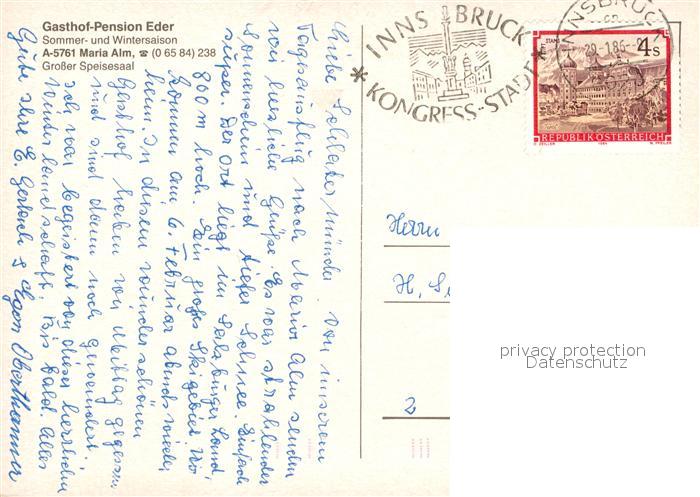 Gasthof-Pension Eder
Sommer- und Wintersaison
A-5761 Maria Alm, ☎ (0 65 84) 238
Großer Speisesaal
INNSBRUCK
* KONGRESS-STADT *
INNSBRUCK
29-1.86
STAMS
4 S
REPUBLIK ÖSTERREICH
O. ZEILLER 1984 W. PFEILER
Liebe Soldater Von unserem
Tagesausflug nach Maria Alm senden
wir herzliche Grüße. Es war strahlender
Sonnenschein und tiefer Schnee. Einfach
super. Der Ort liegt im Salzburger Land
800 m hoch. Ein großes Skigebiet. Wir
kommen am 6. Februar abends wieder
heim. In diesem wunderschönen
Gasthof haben wir Mittag gegessen
und sind dann noch gewandert.
Ich war begeistert von dieser herrlichen
Winterlandschaft. Bis bald. Alles
Gute Ihre E. Gerlach
Herrn
H. Se
2
privacy protection
Datenschutz